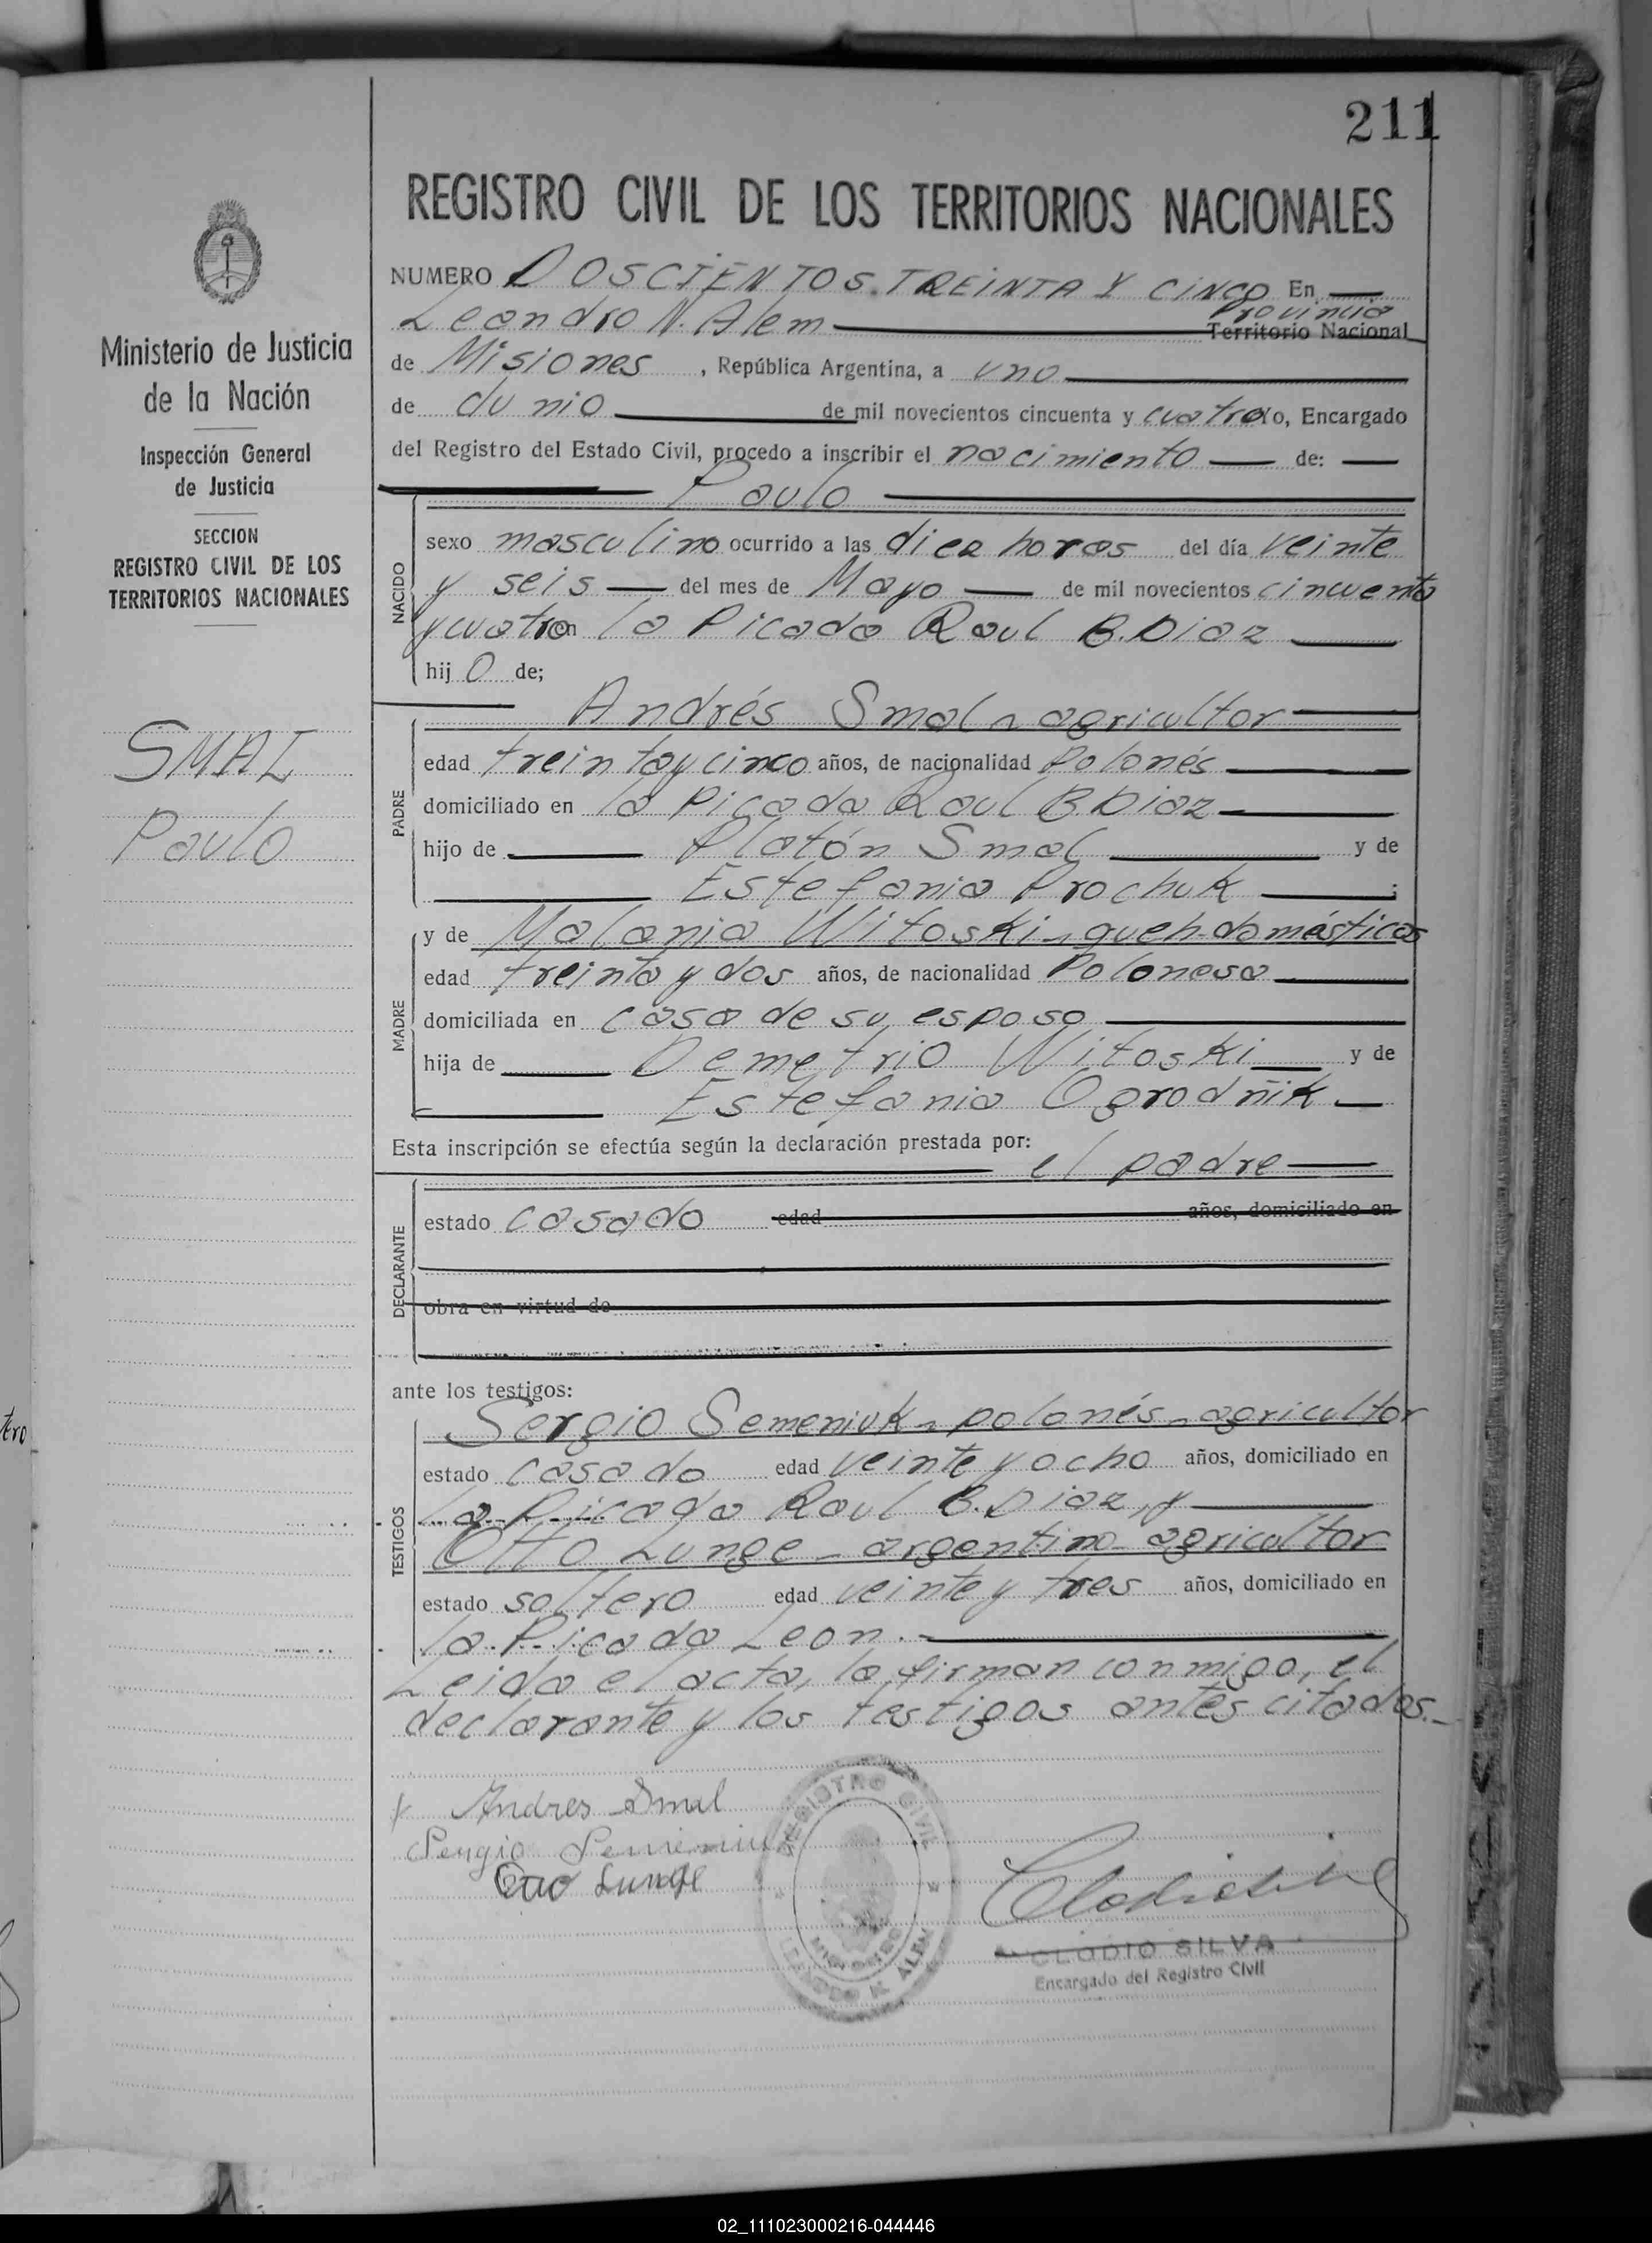 211
REGISTRO CIVIL DE LOS TERRITORIOS NACIONALES
NUMERO DOSCIENTOS TREINTA Y CINCO En
Provincia
Leandro N. Alem Territorio Nacional
de Misiones, República Argentina, a uno
de Junio de mil novecientos cincuenta y cuatro Yo, Encargado
del Registro del Estado Civil, procedo a inscribir el nacimiento de:
Paulo
NACIDO
sexo masculino ocurrido a las diez horas del día veinte
y seis del mes de Mayo de mil novecientos cincuenta
y cuatro en la Picada Raul B. Diaz
hijo de;
PADRE
Andrés Smal - agricultor
edad treinta y cinco años, de nacionalidad Polonés
domiciliado en la Picada Raul B Diaz
hijo de Platón Smal y de
Estefania Prochuk ;
MADRE
y de Malania Witoski - queh. domésticos
edad treinta y dos años, de nacionalidad Polonesa
domiciliada en casa de su esposo
hija de Demetrio Witoski y de
Estefania Ogrodñik
Esta inscripción se efectúa según la declaración prestada por:
el padre
DECLARANTE
estado casado edad años, domiciliado en
obra en virtud de
ante los testigos:
TESTIGOS
Sergio Semeniuk - polonés - agricultor
estado casado edad veinte y ocho años, domiciliado en
la Picada Raul B. Diaz, y
Otto Lunge - argentino - agricultor
estado soltero edad veinte y tres años, domiciliado en
la Picada Leon.-
Leida el acta, la firman conmigo, el
declarante y los testigos antes citados.-
Andres Smal
Sergio Semeniu
Otto Lunge
REGISTRO CIVIL
MISIONES
LEANDRO N. ALEM
CLODIO SILVA
Encargado del Registro Civil
Ministerio de Justicia
de la Nación
Inspección General
de Justicia
SECCION
REGISTRO CIVIL DE LOS
TERRITORIOS NACIONALES
SMAL
Paulo
tero
02_111023000216-044446